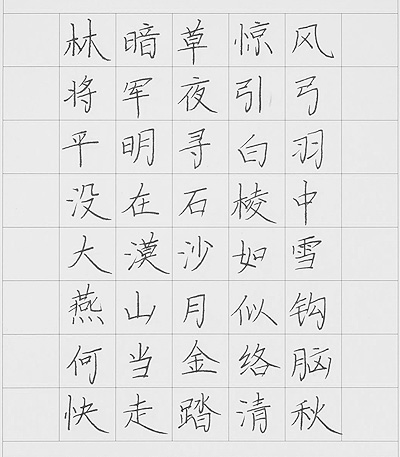 林暗草惊风
将军夜引弓
平明寻白羽
没在石棱中
大漠沙如雪
燕山月似钩
何当金络脑
快走踏清秋